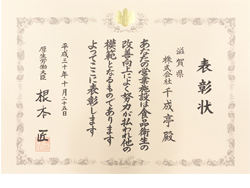 表彰状
滋賀県
株式会社 千成亭 殿
あなたの営業施設は食品衛生の
改善向上によく努力が払われ他の
模範となるものであります
よってここに表彰します
平成三十年十月二十五日
厚生労働大臣 根本 匠